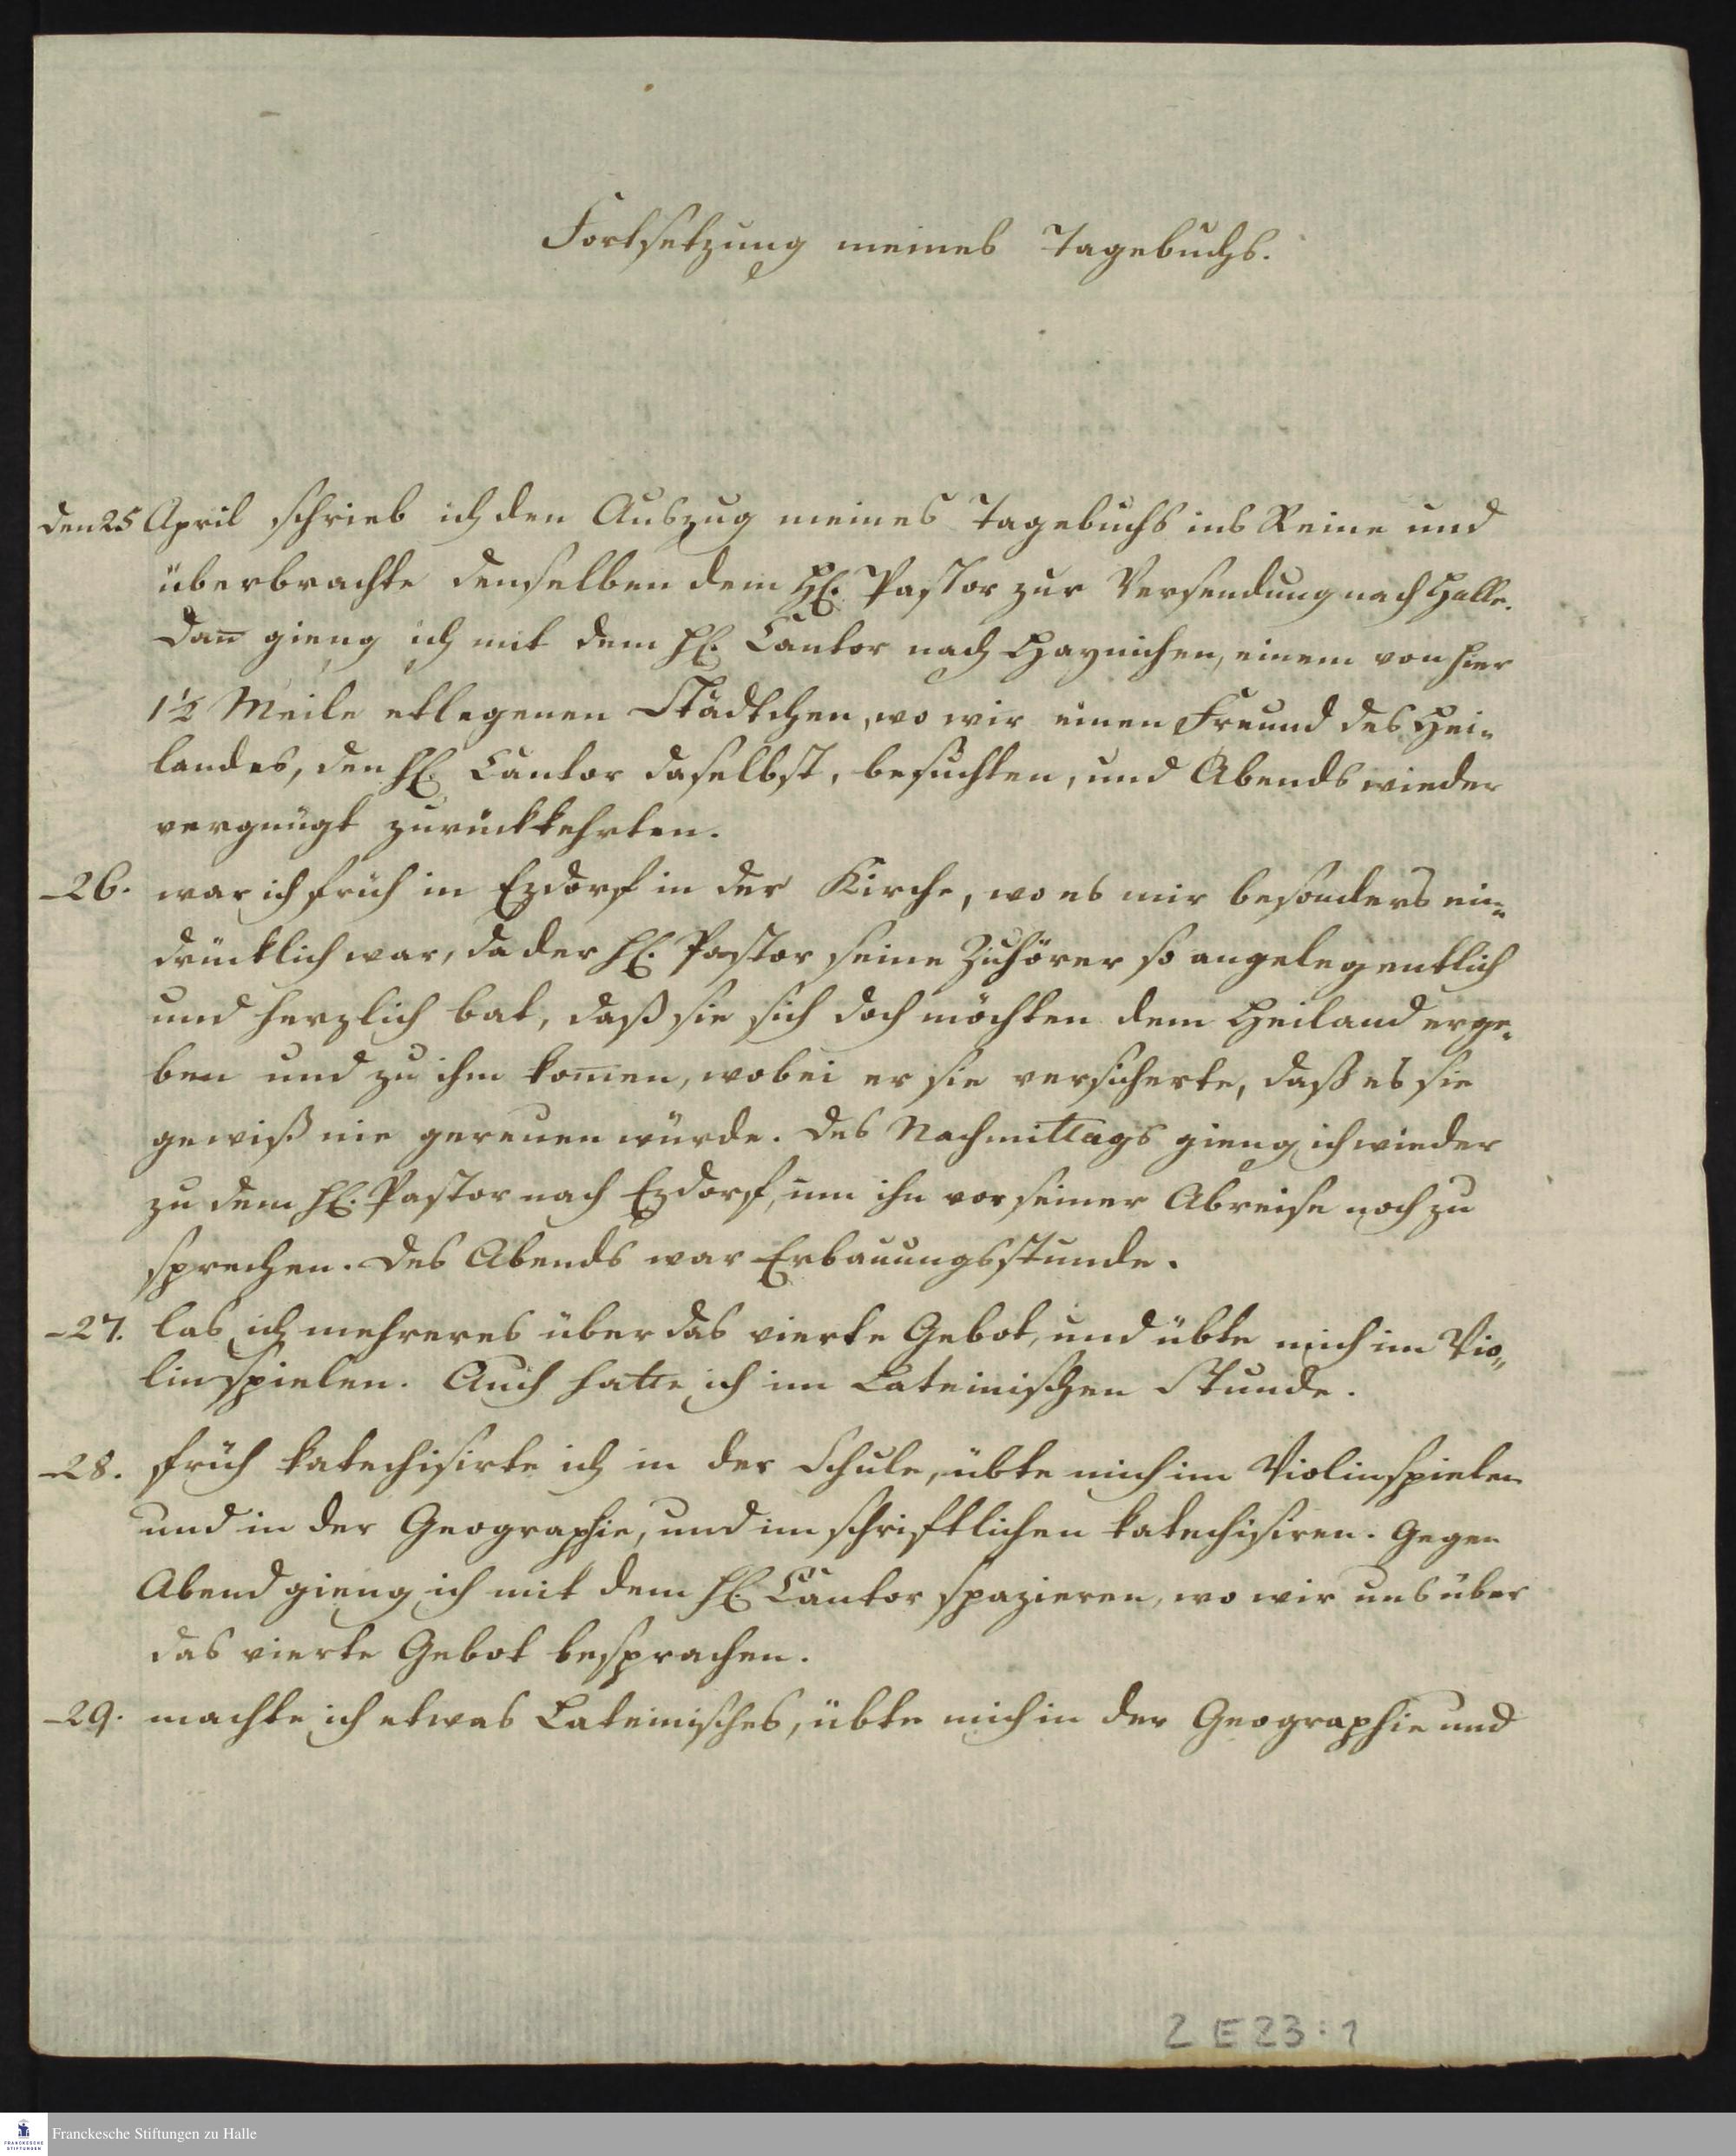 Fortsetzung meines Tagebuchs.
den 25 April schrieb ich den Auszug meines Tagebuchs ins Reine und
überbrachte denselben dem H. Pastor zur Versendung nach Halle.
Dan̅ gieng ich mit dem H. Cantor nach Haynichen, einem von hier
1½ Meile etlegenen Städtchen, wo wir einen Freund des Hei-
landes, den H. Cantor daselbst, besuchten, und Abends wieder
vergnügt zurückkehrten.
-26. war ich früh in Ezdorf in der Kirche, wo es mir besonders ein-
drücklich war, da der H. Pastor seine Zuhörer so angelegentlich
und herzlich bat, daß sie sich doch möchten dem Heiland erge-
ben und zu ihm kom̅en, wobei er sie versicherte, daß es sie
gewiß nie gereuen würde. Des Nachmittags gieng ich wieder
zu dem H. Pastor nach Ezdorf, um ihn vor seiner Abreise noch zu
sprechen. Des Abends war Erbauungsstunde.
-27. las ich mehreres über das vierte Gebot, und übte mich im Vio-
linspielen. Auch hatte ich im Lateinischen Stunde.
-28. früh katechisirte ich in der Schule, übte mich im Violinspielen
und in der Geographie, und im schriftlichen katechisiren. Gegen
Abend gieng ich mit dem H. Cantor spazieren, wo wir uns über
das vierte Gebot besprachen.
-29. machte ich etwas Lateinisches, übte mich in der Geographie und
2 E 23:1
Franckesche Stiftungen zu Halle
FRANCKESCHE
STIFTUNGEN